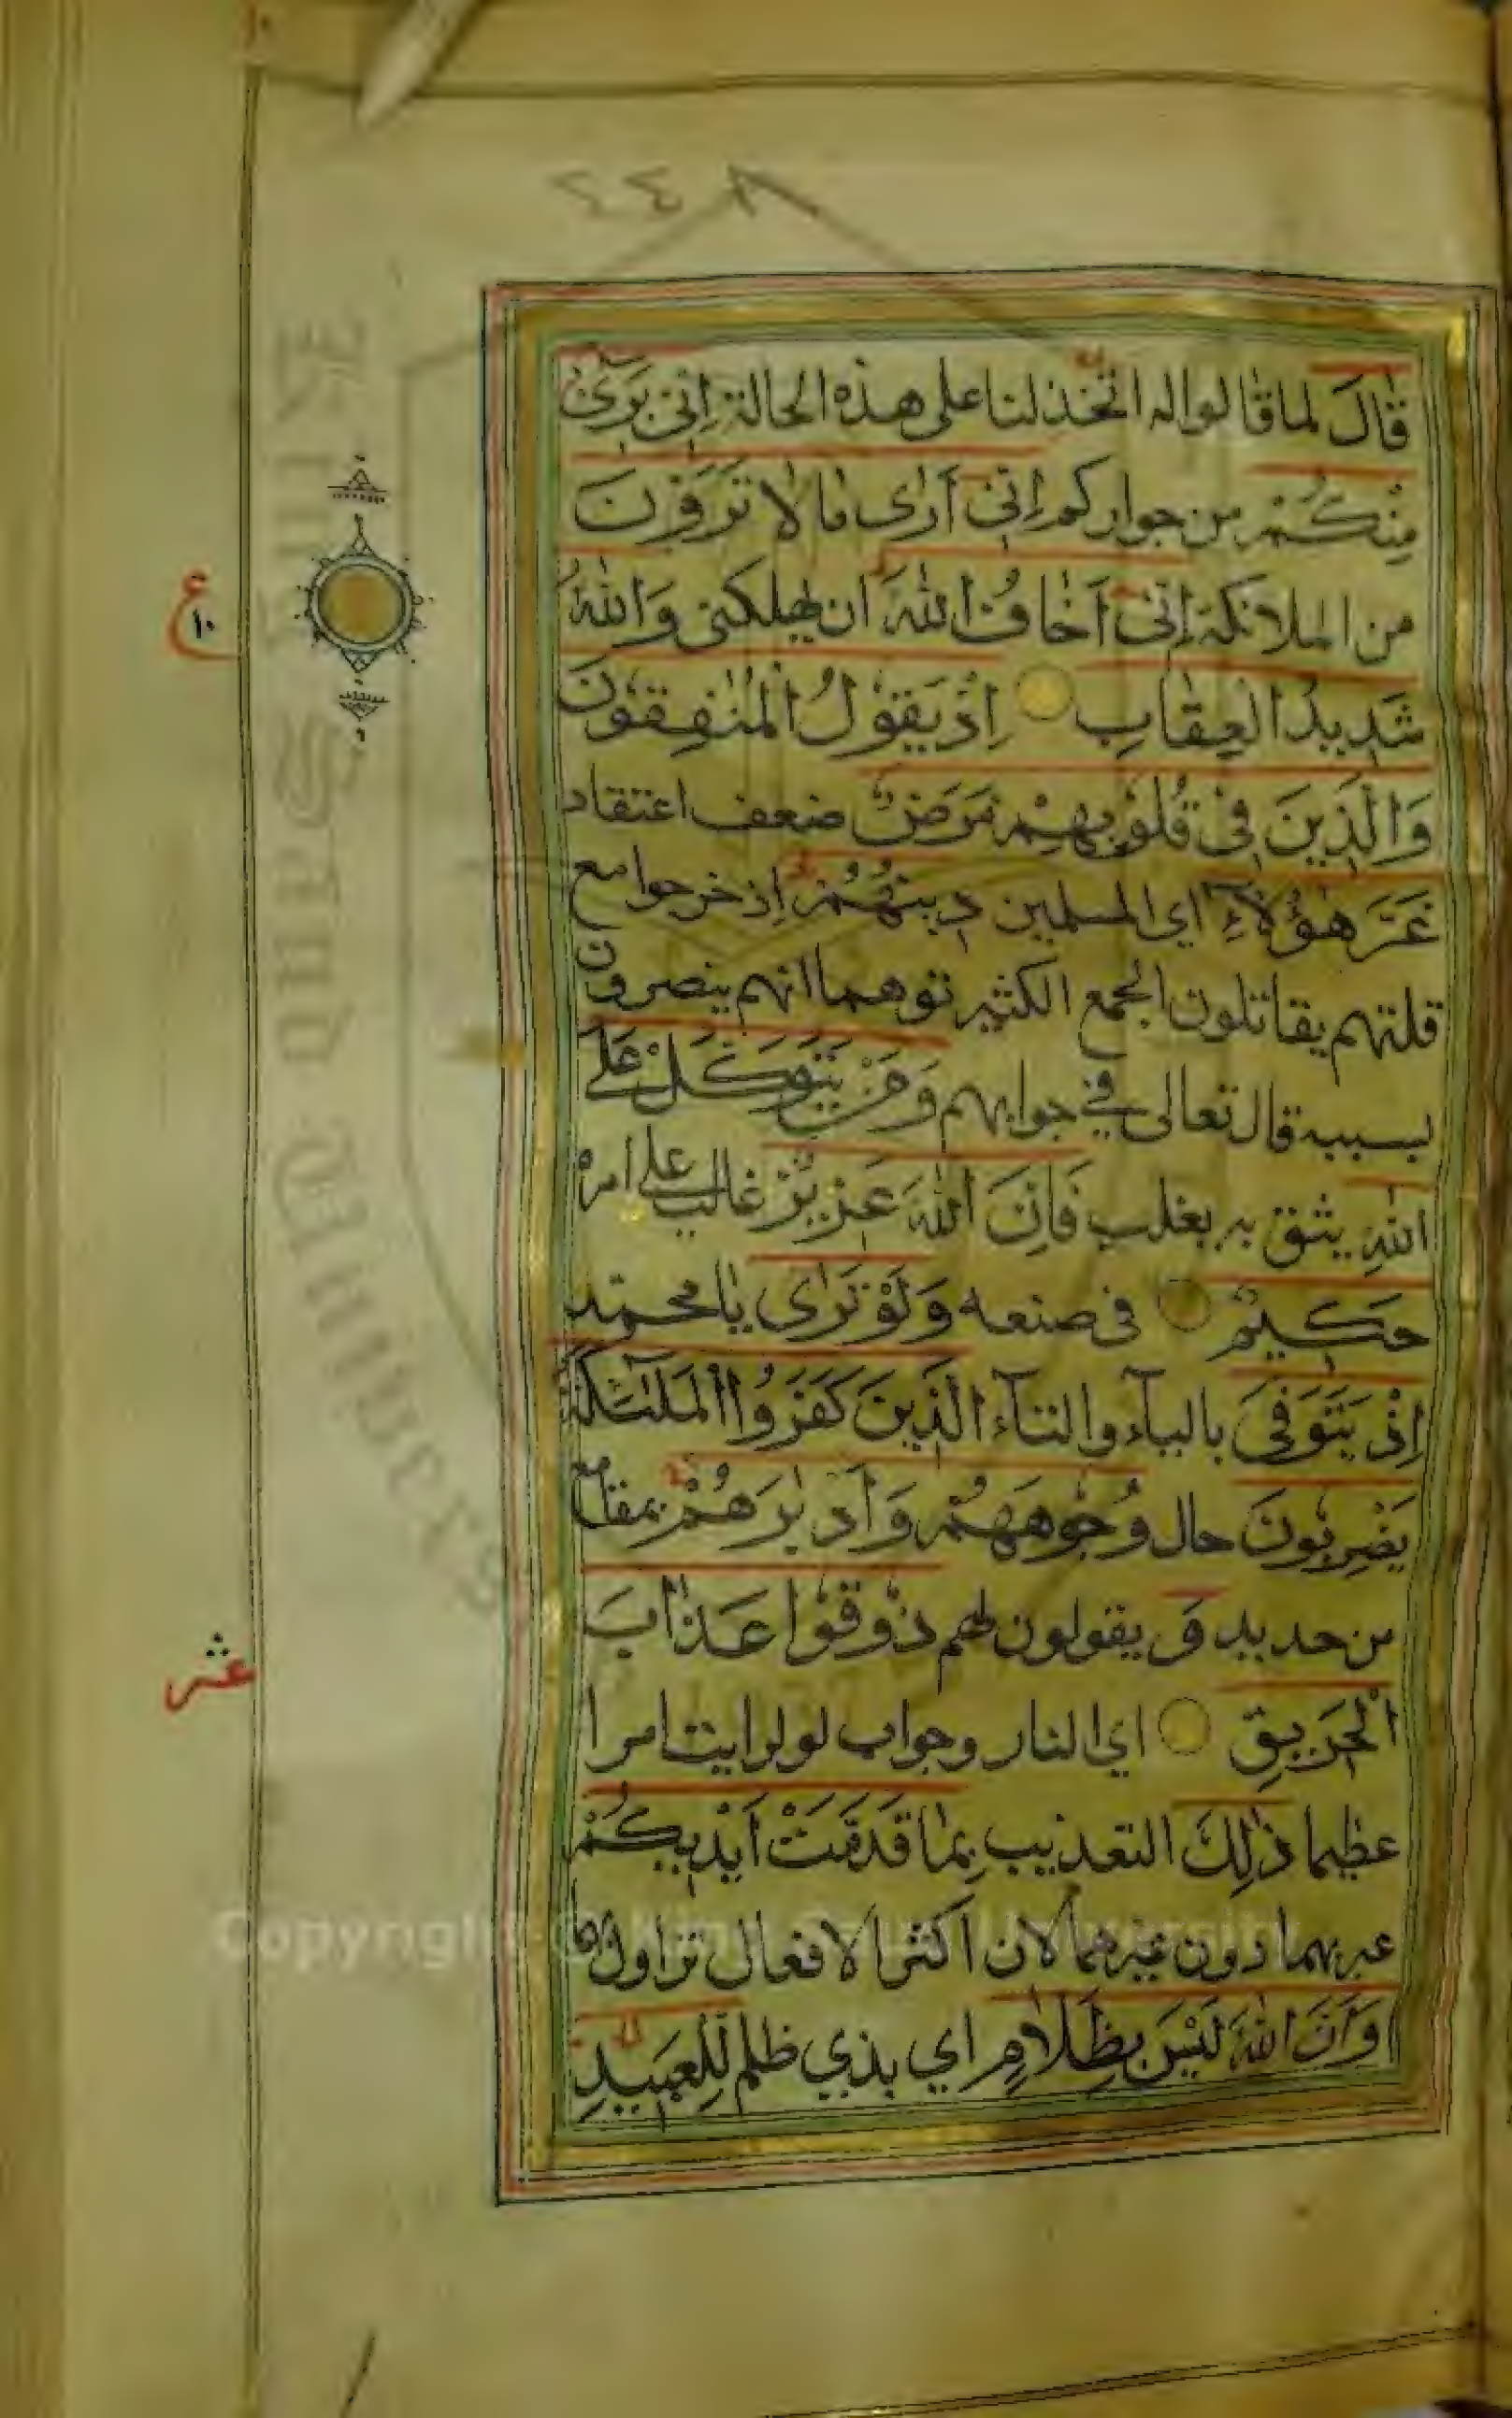 ٢٤٨
قَالَ لما قالوا له اتخذلنا على هذه الحالة اِنّي بَرِیٓءٌ
مِنْكُمْ من جواركم اِنّي اَرٰى مَا لَا تَرَوْنَ
من الملائكة اِنّيٓ اَخَافُ اللّٰهَ ان يهلكني وَاللّٰهُ
شَدِيدُ الْعِقَابِ اِذْ يَقُولُ الْمُنٰفِقُونَ
وَالَّذِينَ فِي قُلُوبِهِمْ مَرَضٌ ضعف اعتقاد
غَرَّ هٰٓؤُلَآءِ اي المسلمين دِينُهُمْ اذ خرجوا مع
قلتهم يقاتلون الجمع الكثير توهما انهم ينصرون
بسببه قال تعالى في جوابهم وَمَنْ يَتَوَكَّلْ عَلَى
اللّٰهِ يثق به يغلب فَاِنَّ اللّٰهَ عَزِيزٌ غالب على امره
حَكِيمٌ في صنعه وَلَوْ تَرٰى يا محمد
اِذْ يَتَوَفَّى بالياء والتاء الَّذِينَ كَفَرُوا الْمَلٰٓئِكَةُ
يَضْرِبُونَ حال وُجُوهَهُمْ وَاَدْبٰرَهُمْ بمقامع
من حديد وَ يقولون لهم ذُوقُوا عَذَابَ
الْحَرِيقِ اي النار وجواب لو لرايت امرا
عظيما ذٰلِكَ التعذيب بِمَا قَدَّمَتْ اَيْدِيكُمْ
عبر بهما دون غيرهما لان اكثر الافعال تزاول بهما
وَاَنَّ اللّٰهَ لَيْسَ بِظَلَّامٍ اي بذي ظلم لِلْعَبِيدِ
ع
١٠
عشر
Copyright © King Saud University
King Saud University